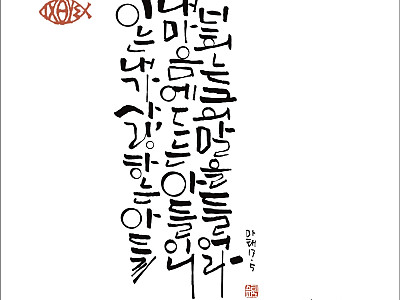 ΙΧΘΥΣ
이는 내가 사랑하는 아들
내 마음에 드는 아들이니
너희는 그의 말을 들어라
마태17.5